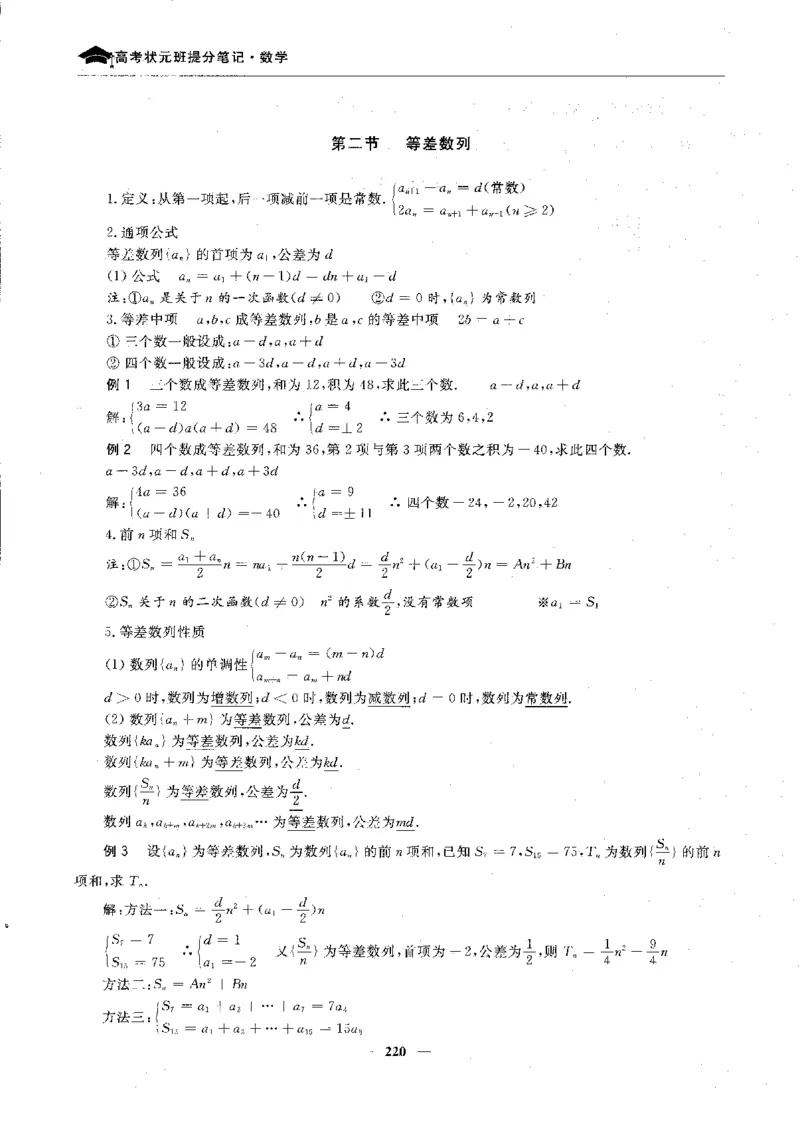 高考状元班提分笔记·数学
第二节 等差数列
1.定义:从第一项起,后一项减前一项是常数. { aₙ₊₁－aₙ = d(常数)
2aₙ = aₙ₊₁＋aₙ₋₁(n ≥ 2)
2.通项公式
等差数列{aₙ}的首项为a₁,公差为d
(1)公式 aₙ = a₁＋(n－1)d = dn＋a₁－d
注:①aₙ是关于n的一次函数(d ≠ 0) ②d = 0时,{aₙ}为常数列
3.等差中项 a,b,c成等差数列,b是a,c的等差中项 2b = a＋c
①三个数一般设成:a－d,a,a＋d
②四个数一般设成:a－3d,a－d,a＋d,a－3d
例1 三个数成等差数列,和为12,积为48,求此三个数. a－d,a,a＋d
解:{ 3a = 12
(a－d)a(a＋d) = 48 ∴{ a = 4
d = ±2 ∴三个数为6,4,2
例2 四个数成等差数列,和为36,第2项与第3项两个数之积为－40,求此四个数.
a－3d,a－d,a＋d,a＋3d
解:{ 4a = 36
(a－d)(a＋d) =－40 ∴{ a = 9
d =±11 ∴四个数－24,－2,20,42
4.前n项和Sₙ
注:①Sₙ = (a₁＋aₙ)/2 n = na₁＋n(n－1)/2 d = d/2 n²＋(a₁－d/2)n = An²＋Bn
②Sₙ关于n的二次函数(d ≠ 0) n²的系数d/2,没有常数项 ※a₁ = S₁
5.等差数列性质
(1)数列{aₙ}的单调性{ aₘ－aₙ = (m－n)d
aₘ₊ₙ = aₘ＋nd
d＞0时,数列为增数列;d＜0时,数列为减数列;d = 0时,数列为常数列.
(2)数列{aₙ＋m}为等差数列,公差为d.
数列{kaₙ}为等差数列,公差为kd.
数列{kaₙ＋m}为等差数列,公差为kd.
数列{Sₙ/n}为等差数列,公差为d/2.
数列aₖ,aₖ₊ₘ,aₖ₊₂ₘ,aₖ₊₃ₘ…为等差数列,公差为md.
例3 设{aₙ}为等差数列,Sₙ为数列{aₙ}的前n项和,已知S₇ = 7,S₁₅ = 75,Tₙ为数列{Sₙ/n}的前n
项和,求Tₙ.
解:方法一:Sₙ = d/2 n²＋(a₁－d/2)n
{ S₇ = 7
S₁₅ = 75 ∴{ d = 1
a₁ =－2 又{Sₙ/n}为等差数列,首项为－2,公差为1/2,则Tₙ = 1/4 n²－9/4 n
方法二:Sₙ = An²＋Bn
方法三:{ S₇ = a₁＋a₂＋…＋a₇ = 7a₄
S₁₅ = a₁＋a₂＋…＋a₁₅ = 15a₈
220